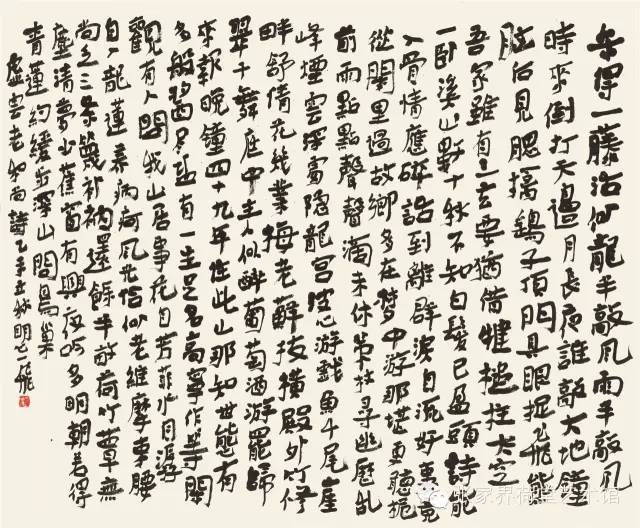 安得一藤活似龍半敲風雨半敲風
時來倒打天邊月長夜誰敲大地鐘
后見腮擒鷂子頂門具眼捉飛熊
吾家雖有三玄要猶借獰槌拄太空
一卧溪山數十秋不知白髮已盈頭詩能
入骨情應碎話到離群淚自流好事竟
從閑里過故鄉多在夢中游那堪更聽
前雨點點聲聲滴未休策杖尋幽歷亂
峰煙雲深處隱龍宮游戲魚牛尾崖
畔舒倩花幾業梅老蘚枝橫殿外竹修
翠千舞庭中主人似酔葡萄酒游罷歸
來報晚鐘四十九年住此山那知世態有
多般有一生是名高寧作等閑
觀有人問我山居事花自芳菲水自潺
自入龍蓮養病疴風光恰似老維摩束腰
尚乏三条篾補衲還餘半畝荷竹簟無
塵清夢少蕉窗有興夜吟多明朝若得
青蓮約緩步深山問鳥巢
虛雲老和尚詩乙未立秋明一飛
张家界荷堂艺术馆